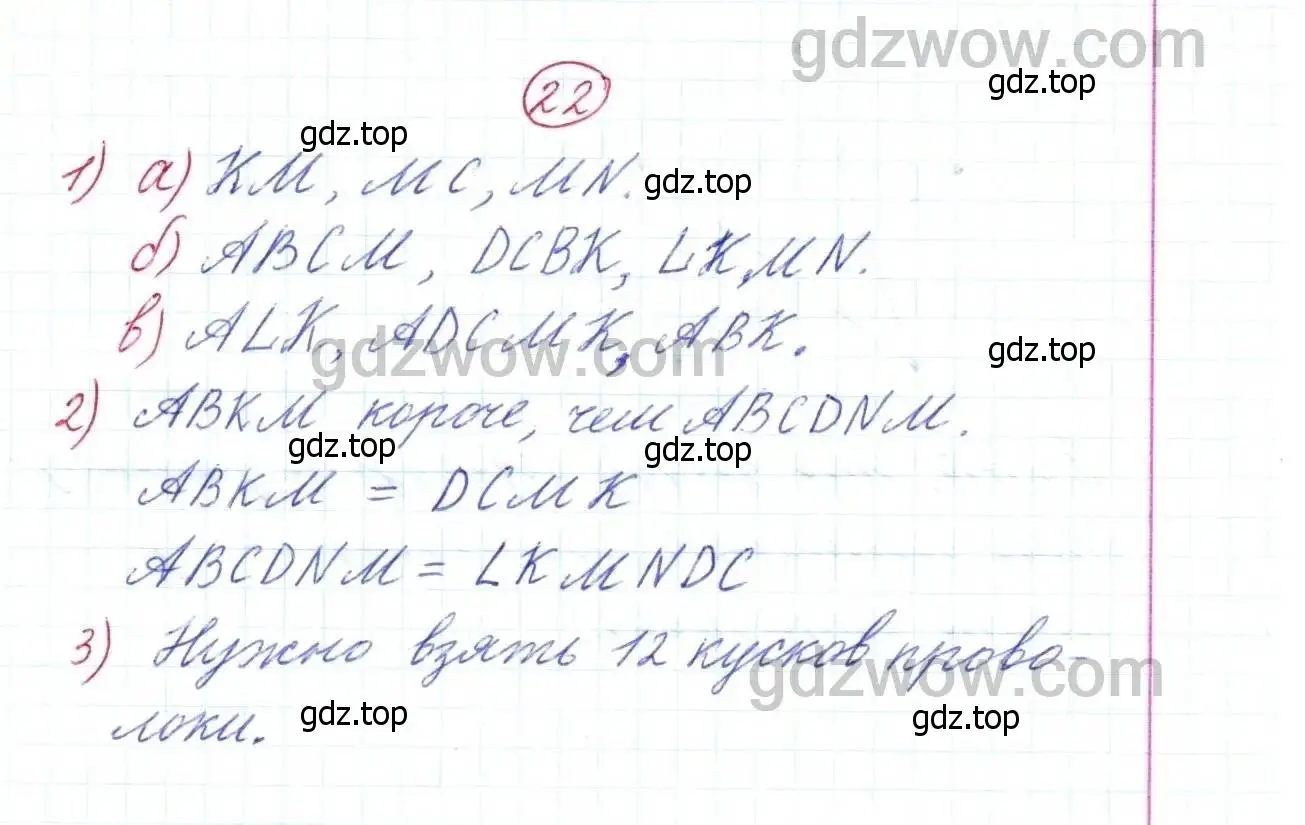 gdzwow.com
gdz.top
22
gdz.top
1) а) KM, MC, MN. gdz.top
б) ABCM, DCBK, LK, MN.
в) ALK, ADCMK, ABK.
gdzwow.com
gdz.top
2) ABKM короче, чем ABCDNM.
gdz.top gdz.top
ABKM = DCMK
ABCDNM = LKMNDC
3) Нужно взять 12 кусков прово-
gdzwow.com
локи. gdz.top gdz.top